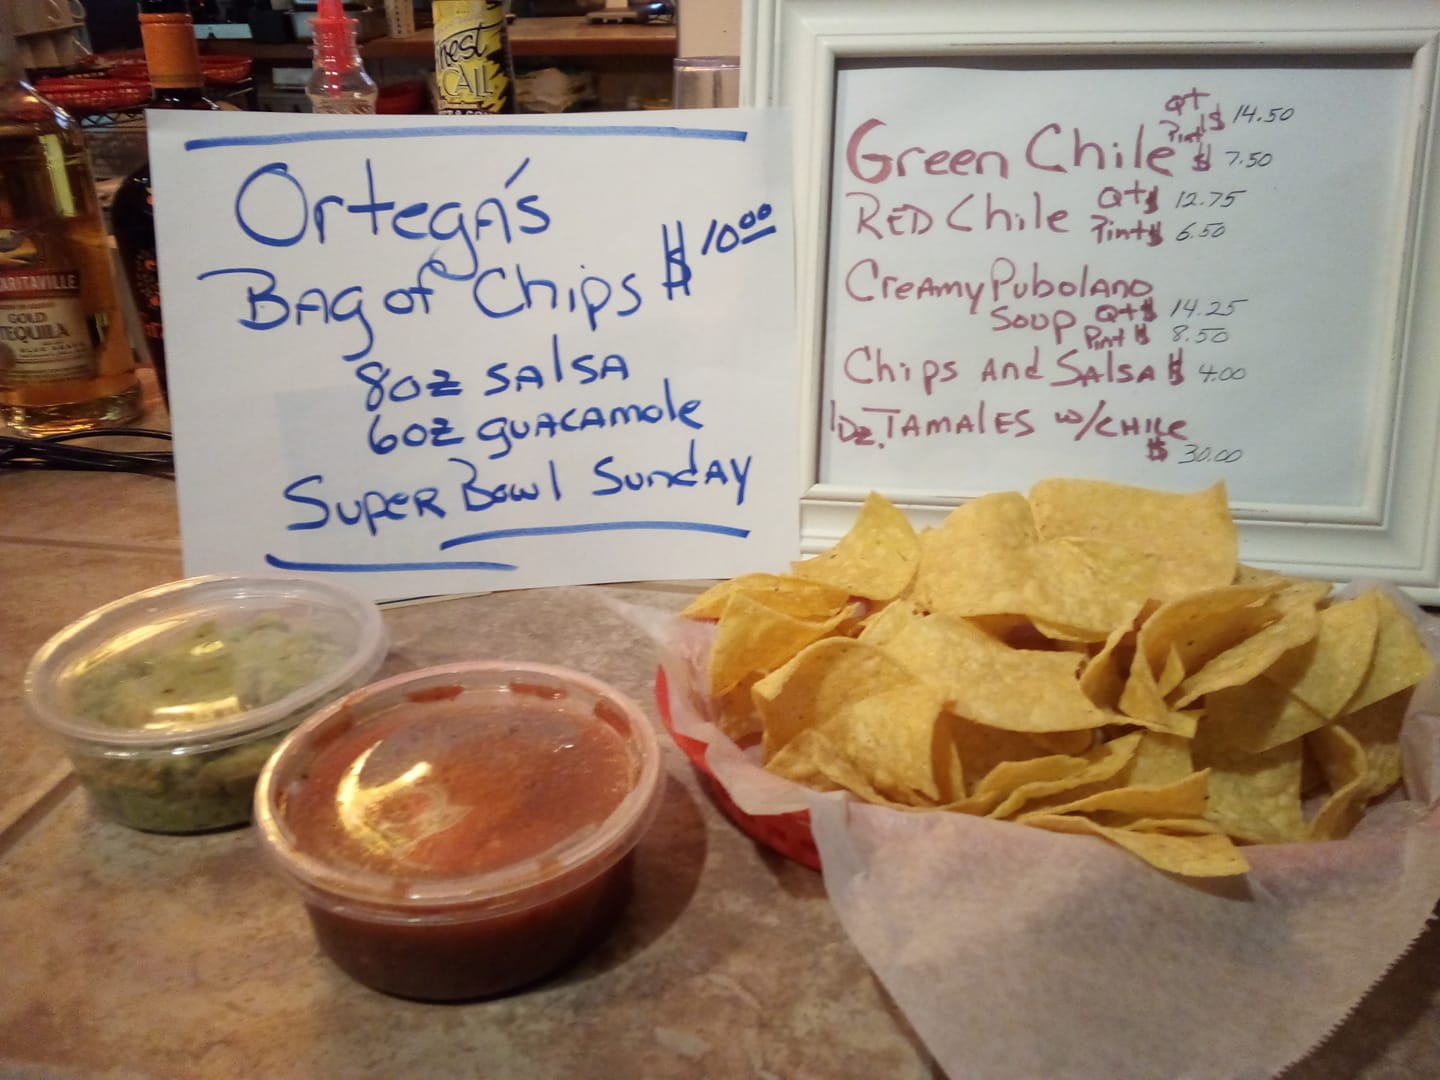 Ortega's
Bag of Chips $10.00
8oz SALSA
6oz guacamole
Super Bowl Sunday
Qt $ 14.50
Green Chile Pint $ 7.50
RED Chile Qt $ 12.75
Pint $ 6.50
Creamy Pubolano
Soup Qt $ 14.25
Pint $ 8.50
Chips and Salsa $ 4.00
1 Dz. TAMALES w/CHILE
$ 30.00
GOLD
TEQUILA
CALL